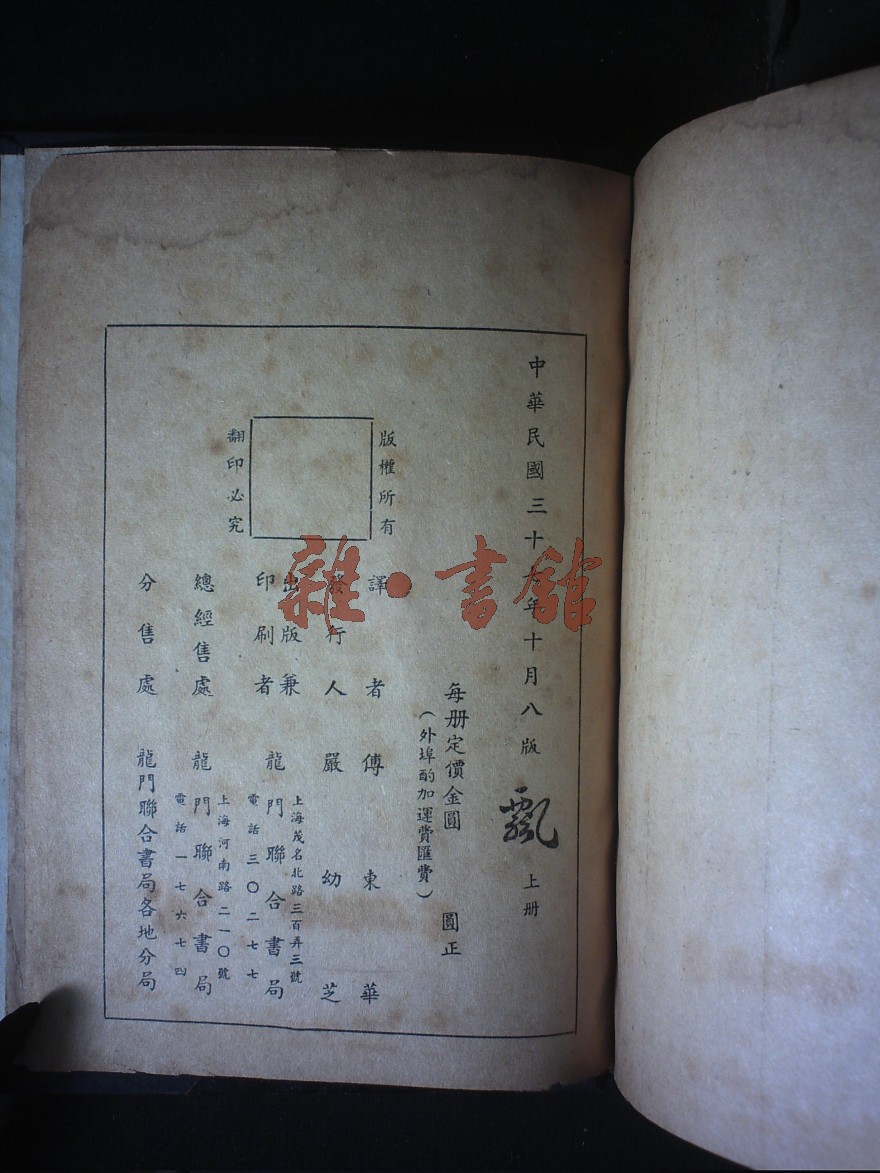 中華民國三十年十月八版
飄 上册
每册定價金圓 圓正
(外埠酌加運費匯費)
版權所有
翻印必究
譯者 傅東華
發行人 嚴幼芝
出版兼印刷者 龍門聯合書局
上海茂名北路三百弄三號
電話 三〇二七七
總經售處 龍門聯合書局
上海河南路二一〇號
電話 一七六七四
分售處 龍門聯合書局各地分局
雜·書館